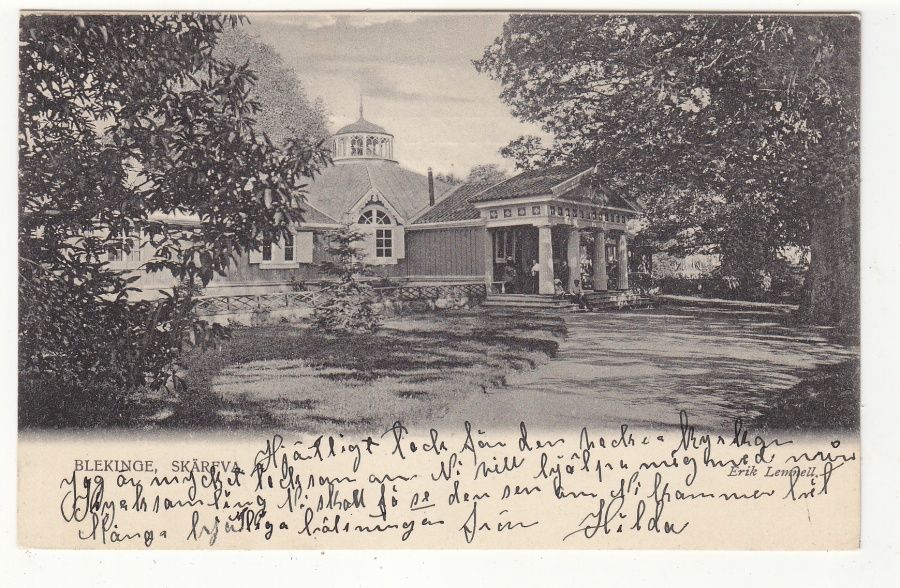 BLEKINGE, SKÄREVA.
Erik Lemnell.
Hjärtligt tack för den vackra kyrkan
jag är mycket tacksam om Ni vill hjälpa mig med min
samling Ni skall få se den sen om Ni kommer hit
Många hjärtliga hälsningar från Hilda